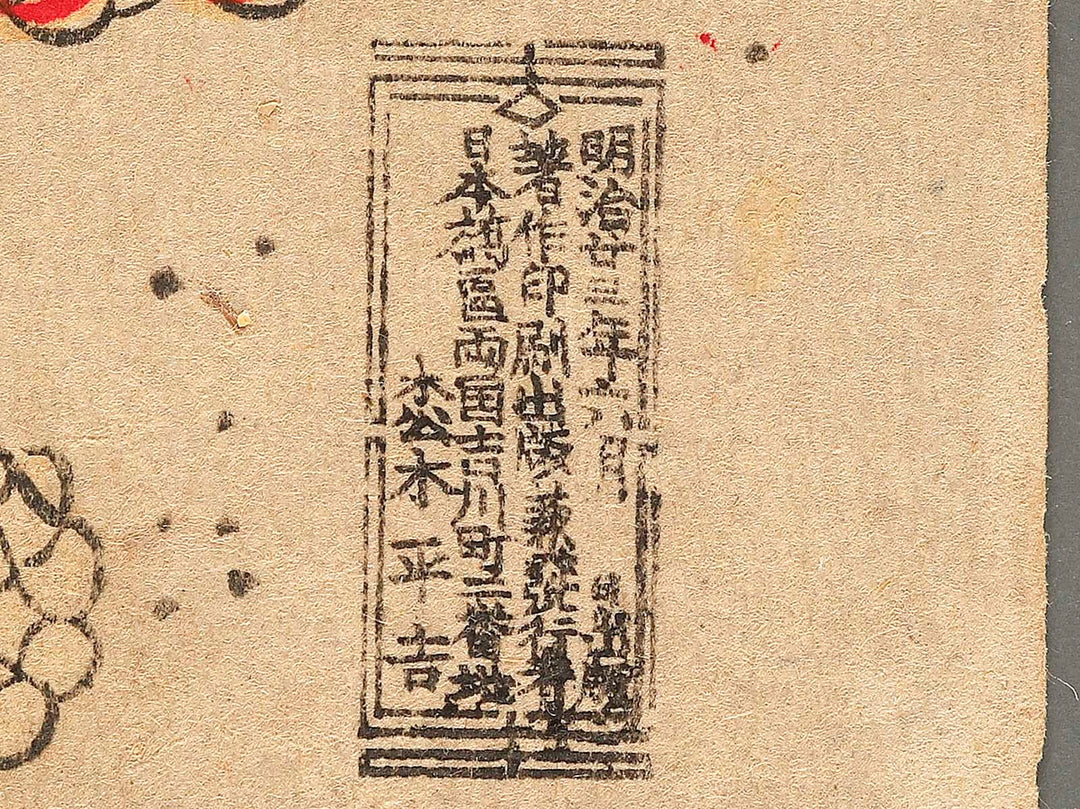 明治廿三年六月 出版
著作印刷出版兼発行者
日本橋區両国吉川町二番地
松木平吉